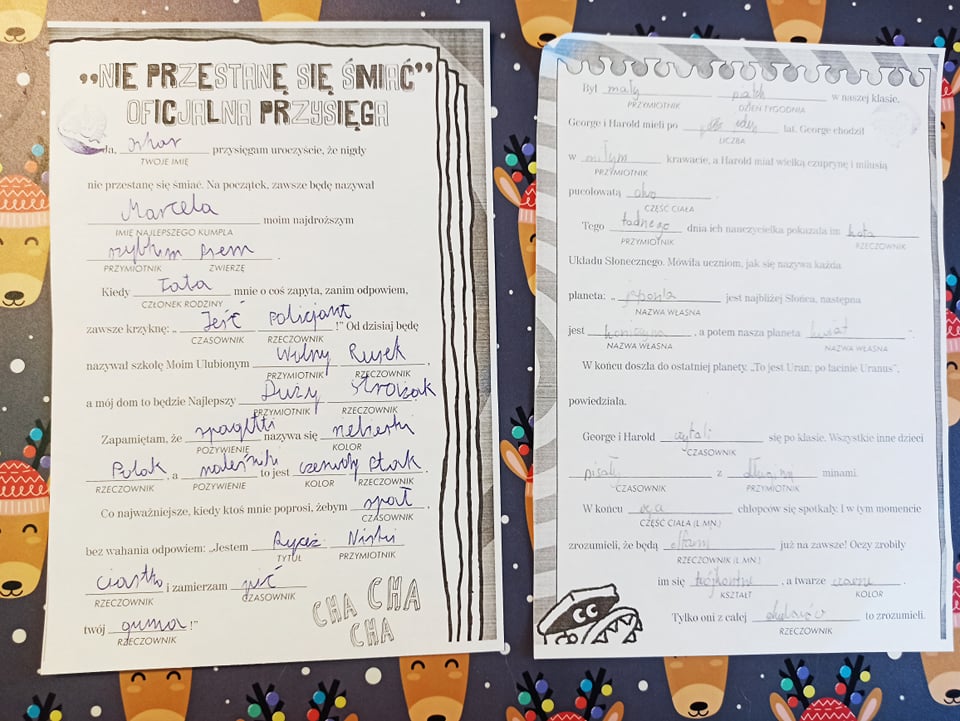 „NIE PRZESTANĘ SIĘ ŚMIAĆ”
OFICJALNA PRZYSIĘGA
Ja, Oskar przysięgam uroczyście, że nigdy
TWOJE IMIĘ
nie przestanę się śmiać. Na początek, zawsze będę nazywał
Marcela moim najdroższym
IMIĘ NAJLEPSZEGO KUMPLA
szybkim psem .
PRZYMIOTNIK ZWIERZĘ
Kiedy Tata mnie o coś zapyta, zanim odpowiem,
CZŁONEK RODZINY
zawsze krzyknę: „ Jeść policjant !” Od dzisiaj będę
CZASOWNIK RZECZOWNIK
nazywał szkołę Moim Ulubionym Wolny Rusek ,
PRZYMIOTNIK RZECZOWNIK
a mój dom to będzie Najlepszy Duży Strażak .
PRZYMIOTNIK RZECZOWNIK
Zapamiętam, że spagetti nazywa się niebieski
POŻYWIENIE KOLOR
Polak , a naleśniki to jest czerwony ptak .
RZECZOWNIK POŻYWIENIE KOLOR RZECZOWNIK
Co najważniejsze, kiedy ktoś mnie poprosi, żebym spał ,
CZASOWNIK
bez wahania odpowiem: „Jestem Ryceż Niski
TYTUŁ PRZYMIOTNIK
ciastko i zamierzam pić
RZECZOWNIK CZASOWNIK
twój guma !”
RZECZOWNIK
CHA CHA
CHA
Był mały w naszej klasie.
PRZYMIOTNIK DZIEŃ TYGODNIA
George i Harold mieli po lat. George chodził
LICZBA
w miłym krawacie, a Harold miał wielką czuprynę i milusią
PRZYMIOTNIK
pucołowatą oko .
CZĘŚĆ CIAŁA
Tego ładnego dnia ich nauczycielka pokazała im kota
PRZYMIOTNIK RZECZOWNIK
Układu Słonecznego. Mówiła uczniom, jak się nazywa każda
planeta: „ jest najbliżej Słońca, następna
NAZWA WŁASNA
jest , a potem nasza planeta .
NAZWA WŁASNA NAZWA WŁASNA
W końcu doszła do ostatniej planety. „To jest Uran, po łacinie Uranus”,
powiedziała.
George i Harold czytali się po klasie. Wszystkie inne dzieci
CZASOWNIK
pisały z długimi minami.
CZASOWNIK PRZYMIOTNIK
W końcu chłopców się spotkały. I w tym momencie
CZĘŚĆ CIAŁA (L.MN.)
zrozumieli, że będą już na zawsze! Oczy zrobiły
RZECZOWNIK (L.MN.)
im się trójkontne , a twarze czarne .
KSZTAŁT KOLOR
Tylko oni z całej to zrozumieli.
RZECZOWNIK